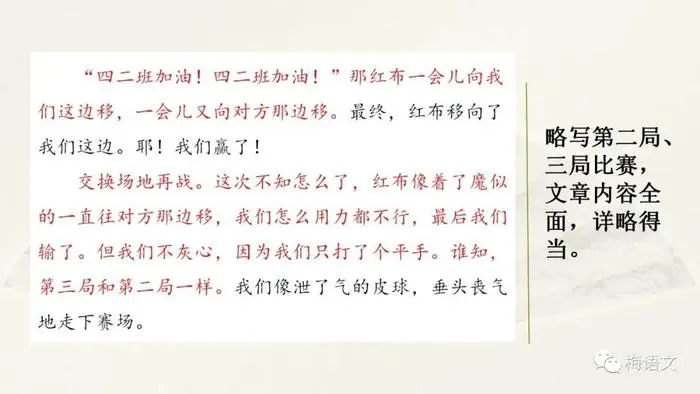 “四二班加油！四二班加油！”那红布一会儿向我
们这边移，一会儿又向对方那边移。最终，红布移向了
我们这边。耶！我们赢了！
交换场地再战。这次不知怎么了，红布像着了魔似
的一直往对方那边移，我们怎么用力都不行，最后我们
输了。但我们不灰心，因为我们只打了个平手。谁知，
第三局和第二局一样。我们像泄了气的皮球，垂头丧气
地走下赛场。
略写第二局、
三局比赛，
文章内容全
面，详略得
当。
梅语文